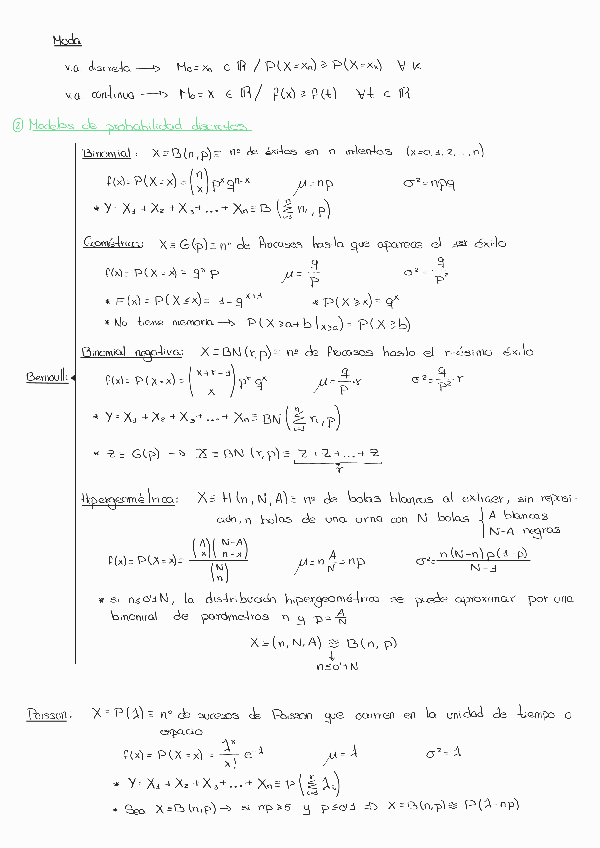 Moda
v.a discreta → Mo = xₙ ∈ ℝ / P(X=xₙ) ≥ P(X=xₖ) ∀ k
v.a continua → Mo = x ∈ ℝ / f(x) ≥ f(t) ∀t ∈ ℝ
② Modelos de probabilidad discretos
Binomial: X≡B(n,p) ≡ nº de éxitos en n intentos (x=0,1,2,...,n)
f(x) = P(X=x) = (n x) pˣ qⁿ⁻ˣ μ = np σ² = npq
* Y = X₁ + X₂ + X₃ + ... + Xₙ ≡ B(Σ nᵢ, p)
Geométrica: X≡G(p) ≡ nº de fracasos hasta que aparece el 1er éxito
f(x) = P(X=x) = qˣ p μ = q/p σ² = q/p²
* F(x) = P(X≤x) = 1-qˣ⁺¹ * P(X≥x) = qˣ
* No tiene memoria → P(X≥a+b |x≥a) = P(X≥b)
Binomial negativa: X≡BN(r,p) = nº de fracasos hasta el r-ésimo éxito
Bernoulli
f(x) = P(X=x) = (x+r-1 x) pʳ qˣ μ = q/p·r σ² = q/p²·r
* Y = X₁ + X₂ + X₃ + ... + Xₙ ≡ BN(Σ rᵢ, p)
* Z ≡ G(p) → X ≡ BN(r,p) ≡ Z+Z+...+Z
r
Hipergeométrica: X≡H(n,N,A) = nº de bolas blancas al extraer, sin reposi-
ción, n bolas de una urna con N bolas { A blancas
N-A negras
f(x) = P(X=x) = (A x)(N-A n-x) / (N n) μ = n A/N = np σ² = n(N-n)p(1-p) / N-1
* si n≤0'1N, la distribución hipergeométrica se puede aproximar por una
binomial de parámetros n y p = A/N
X≡(n,N,A) ≈ B(n,p)
↓
n≤0'1N
Poisson: X≡P(λ) ≡ nº de sucesos de Poisson que ocurren en la unidad de tiempo o
espacio
f(x) = P(X=x) = λˣ/x! e⁻λ μ = λ σ² = λ
* Y = X₁ + X₂ + X₃ + ... + Xₙ ≡ P(Σ λᵢ)
* Sea X≡B(n,p) → si np≥5 y p≤0'1 ⇒ X≡B(n,p) ≈ P(λ=np)